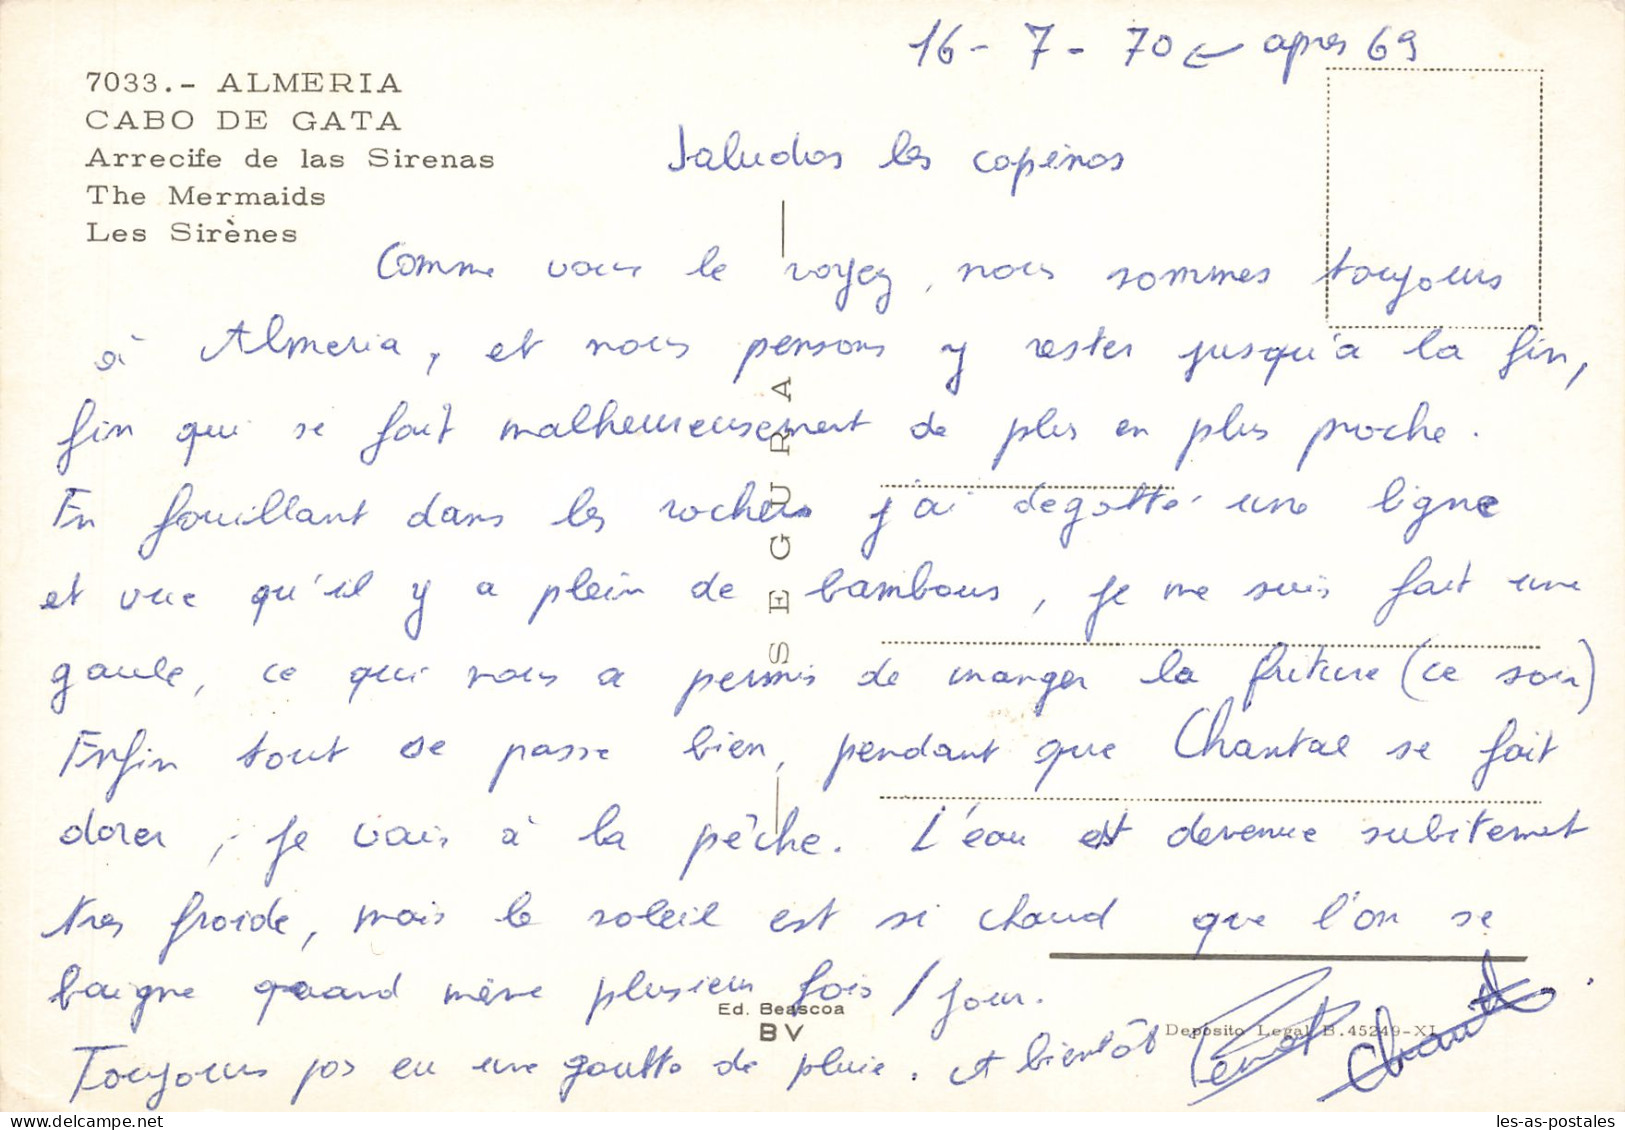 16 - 7 - 70 ← apres 69
7033.- ALMERIA
CABO DE GATA
Arrecife de las Sirenas
The Mermaids
Les Sirènes
Saludos les copinos
Comme vous le voyez, nous sommes toujours
à Almeria, et nous pensons y rester jusqu'à la fin,
fin qui se fait malheureusement de plus en plus proche.
En fouillant dans les roches j'ai degotté une ligne
et vue qu'il y a plein de bambous, je me suis fait une
gaule, ce qui nous a permis de manger la friture (ce soir)
Enfin tout se passe bien, pendant que Chantal se fait
dorer, je vais à la pêche. L'eau est devenue subitement
tres froide, mais le soleil est si chaud que l'on se
baigne quand même plusieurs fois / jour.
Toujours pas eu une goutte de pluie. A bientôt
Chantal
SEGURA
Ed. Beascoa
BV
Deposito Legal B.45249-XI
les-as-postales